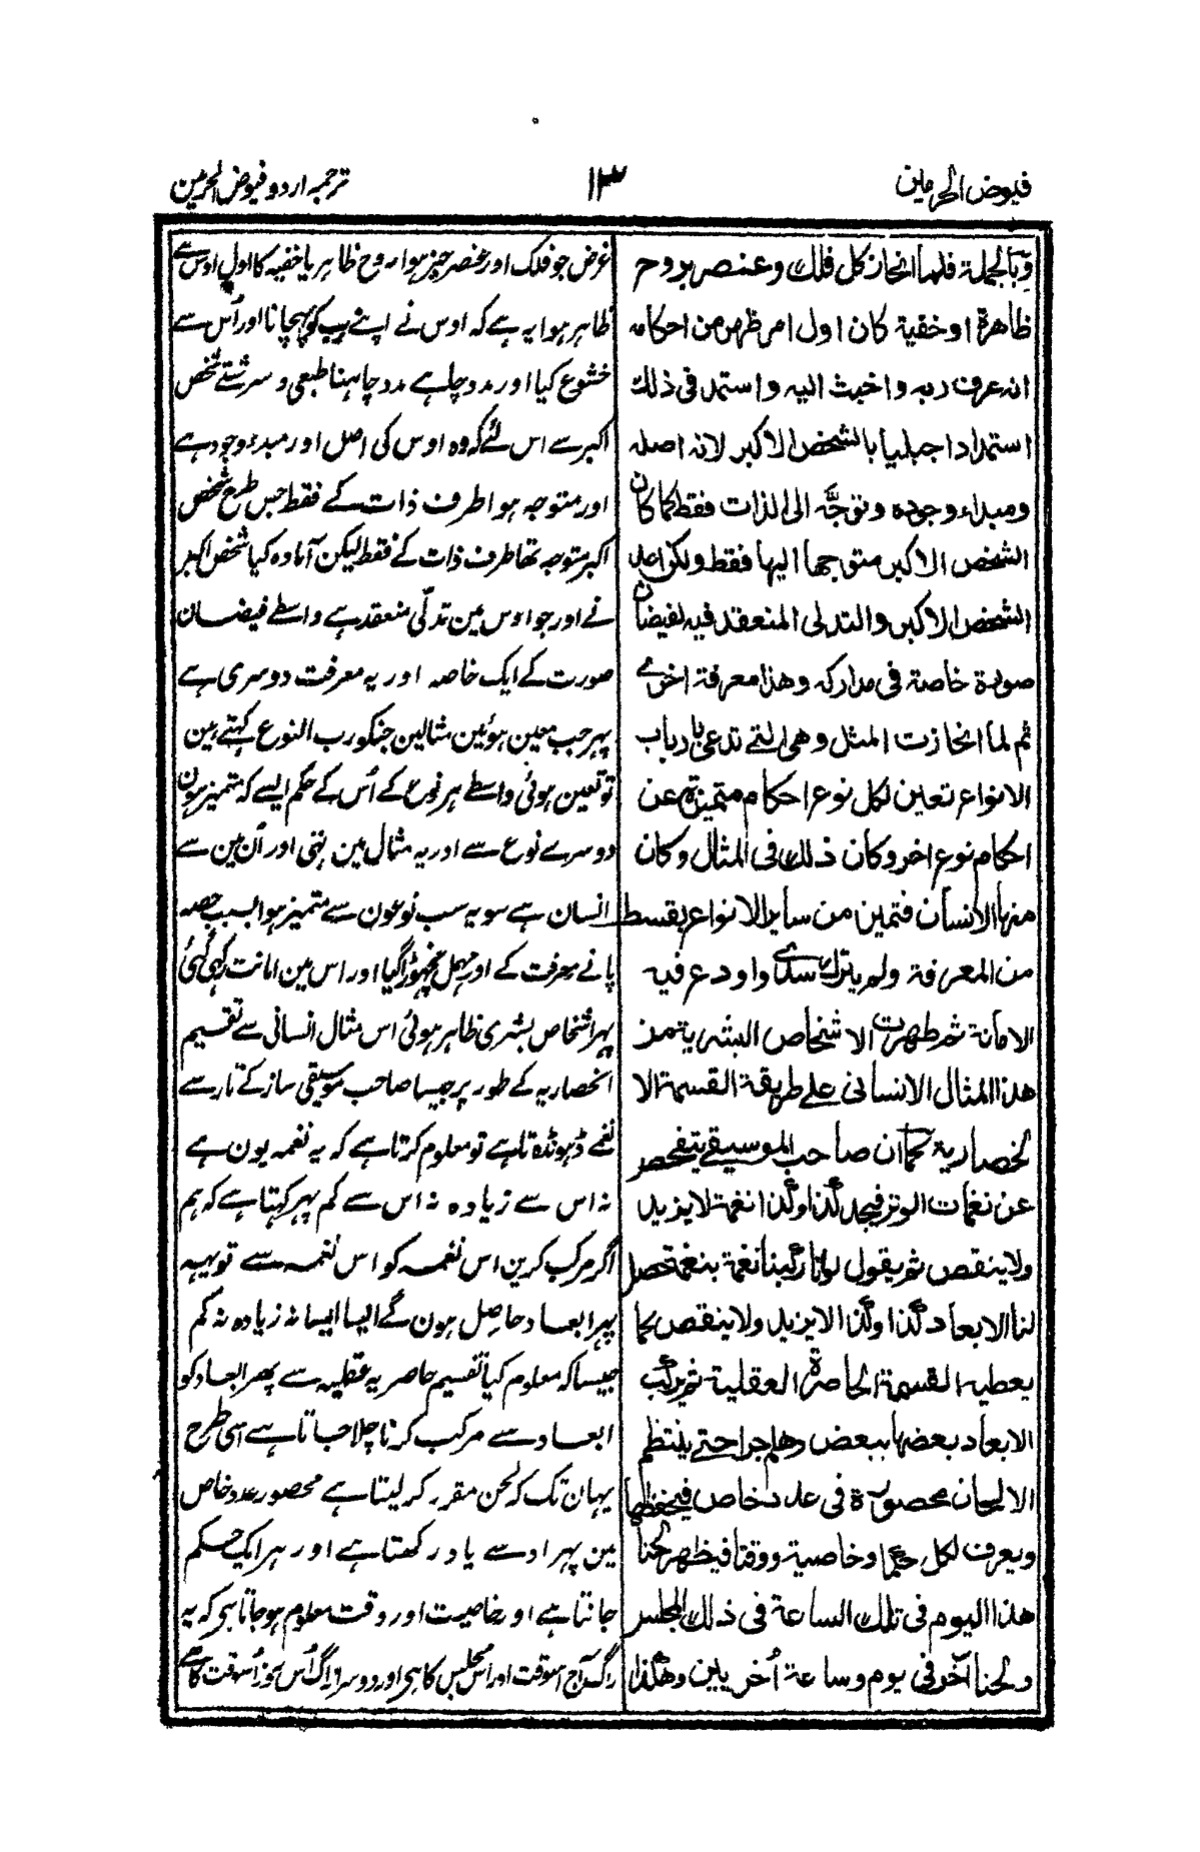 فیوض الحرمین
۱۳
ترجمہ اردو فیوض الحرمین
وبالجملة فلما انحاز كل فلك وعنصر بروح
ظاهرة او خفية كان اول امر ظهر من احكامه
انه عرف ربه واخبت اليه واستمد فى ذلك
استمدادا جبليا بالشخص الاكبر لانه اصله
ومبداء وجوده وتوجّه الى الذات فقط كما كان
الشخص الاكبر متوجها اليها فقط ولكن اعد
الشخص الاكبر والتدلى المنعقد فيه لفيضان
صورة خاصة فى مداركه وهذا معرفة اخرى
ثم لما انحازت المثل وهى التے تدعى بارباب
الانواع تعين لكل نوع احكام متميزة عن
احكام نوع اخر وكان ذلك فى المثال وكان
منها الانسان فتميز من ساير الانواع بقسط
من المعرفة ولم يترك سدے واودع فيه
الامانة ثم ظهرت الاشخاص البشرية من
هذا المثال الانسانى علے طريقة القسمة الا
نحصارية كما ان صاحب الموسيقے يتفحص
عن نغمات الوتر فيجد كذا وكذا نغمة لا يزيد
ولا ينقص ثم يقول لو انا ركبنا نغمة بنغمة حصل
لنا الابعاد كذا وكذا لا يزيد ولا ينقص كما
يعطيه القسمة الحاصرة العقلية ثم يركب
الابعاد بعضها ببعض وهلم جرا حتے ينتظم
الالحان محصورة فى عدد خاص فيحفظها
ويعرف لكل حكما وخاصية ووقتا فيظهر لحنا
هذا اليوم فى تلك الساعة فى ذلك المجلس
ولحنا آخر فى يوم وساعة أخريين وهكذا
غرض جو فلک اور عنصر چیز ہوا روح ظاہر یا خفیہ کا اول اوس سے
ظاہر ہوا یہ ہے کہ اوس نے اپنے رب کو پہچانا اور اُس سے
خشوع کیا اور مدد چاہے مدد چاہنا طبعی و سرشتے شخص
اکبر سے اس لئے کہ وہ اوس کی اصل اور مبدء وجود ہے
اور متوجہ ہوا طرف ذات کے فقط جس طرح شخص
اکبر متوجہ تھا طرف ذات کے فقط لیکن آمادہ کیا شخص اکبر
نے اور جو اوس مین تدلّی منعقد ہے واسطے فیضان
صورت کے ایک خاصہ اور یہ معرفت دوسری ہے
پہر جب معین ہوئین مثالین جنکو رب النوع کہتے ہین
تو تعین ہوئی واسطے ہر نوع کے اُس کے حکم ایسے کہ متمیز ہون
دوسرے نوع سے اور یہ مثال مین تہی اور اُن مین سے
انسان ہے سو یہ سب نوعون سے متمیز ہوا بسبب حصہ
پانے معرفت کے اور مہمل نچھوڑا گیا اور اس مین امانت رکہی گئی
پہر اشخاص بشری ظاہر ہوئی اس مثال انسانی سے تقسیم
انحصاریہ کے طور پر جیسا صاحب موسیقی ساز کے تار سے
نغمے ڈہونڈہتا ہے تو معلوم کرتا ہے کہ یہ نغمہ یون ہے
نہ اس سے زیادہ نہ اس سے کم پہر کہتا ہے کہ ہم
اگر مرکب کرین اس نغمہ کو اس نغمہ سے تو یہہ
پہر ابعاد حاصل ہون گے ایسا ایسا نہ زیادہ نہ کم
جیسا کہ معلوم کیا تقسیم حاصریہ عقلیہ سے پھر ابعاد کو
ابعاد سے مرکب کرتا چلا جاتا ہے اسی طرح
یہان تک کہ لحن مقرر کر لیتا ہے محصور عدد خاص
مین پہر اوسے یاد رکھتا ہے اور ہر ایک حکم
جانتا ہے اور خاصیت اور وقت معلوم ہو جاتا ہی کہ یہ
راگ آج اسوقت اور اس مجلس کا ہی اور دوسرا راگ اُس روز اُسوقت کا ہے